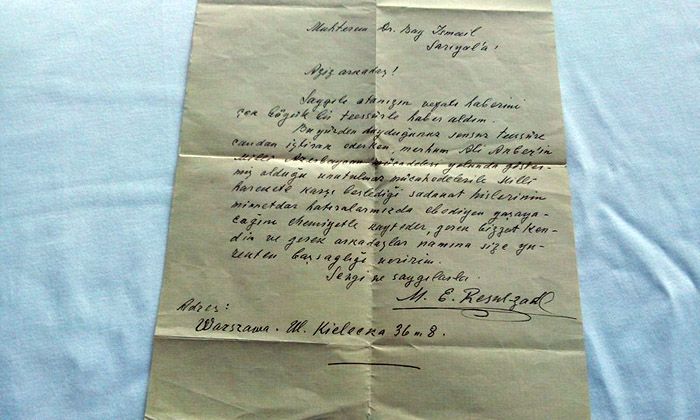 Muhterem Dr. Bay Ismail
Sarıyal'a!
Aziz arkadaş!
Saygılı atanızın vefatı haberini
çok böyük bir teessürle haber aldım.
Bu yüzden duyduğunuz sonsuz teessüre
candan iştirak ederken, merhum Ali Akber'in
Milli Azerbaycan mücadelesi yolunda göster-
miş olduğu unutulmaz mücahedelerile Milli
harekete karşı beslediği sadakat hislerinin
minnetdar hatıralarımızda ebediyen yaşaya-
cağını ehemiyetle kayteder, gerek bizzat ken-
dim ve gerek arkadaşlar namına size yü-
rekten başsağlığı veririm.
Sevgi ve saygılarla.
M. E. Resulzade
Adres:
Warszawa. Ul. Kielecka 36 m 8.